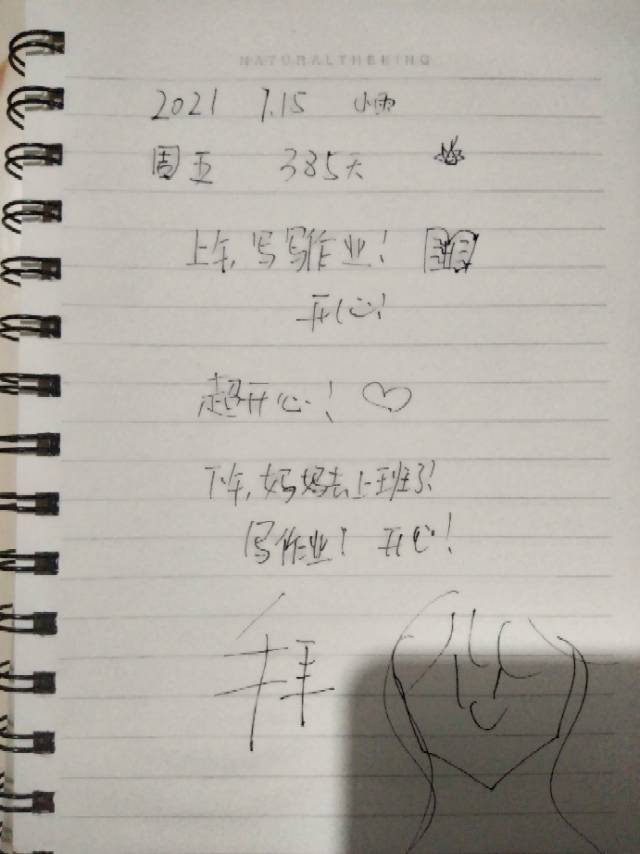 NATURALTHEKING
2021 7.15 小雨
周五 385天
上午,写写作业!
开心!
超开心!
下午,妈妈去上班了!
写作业! 开心!
拜